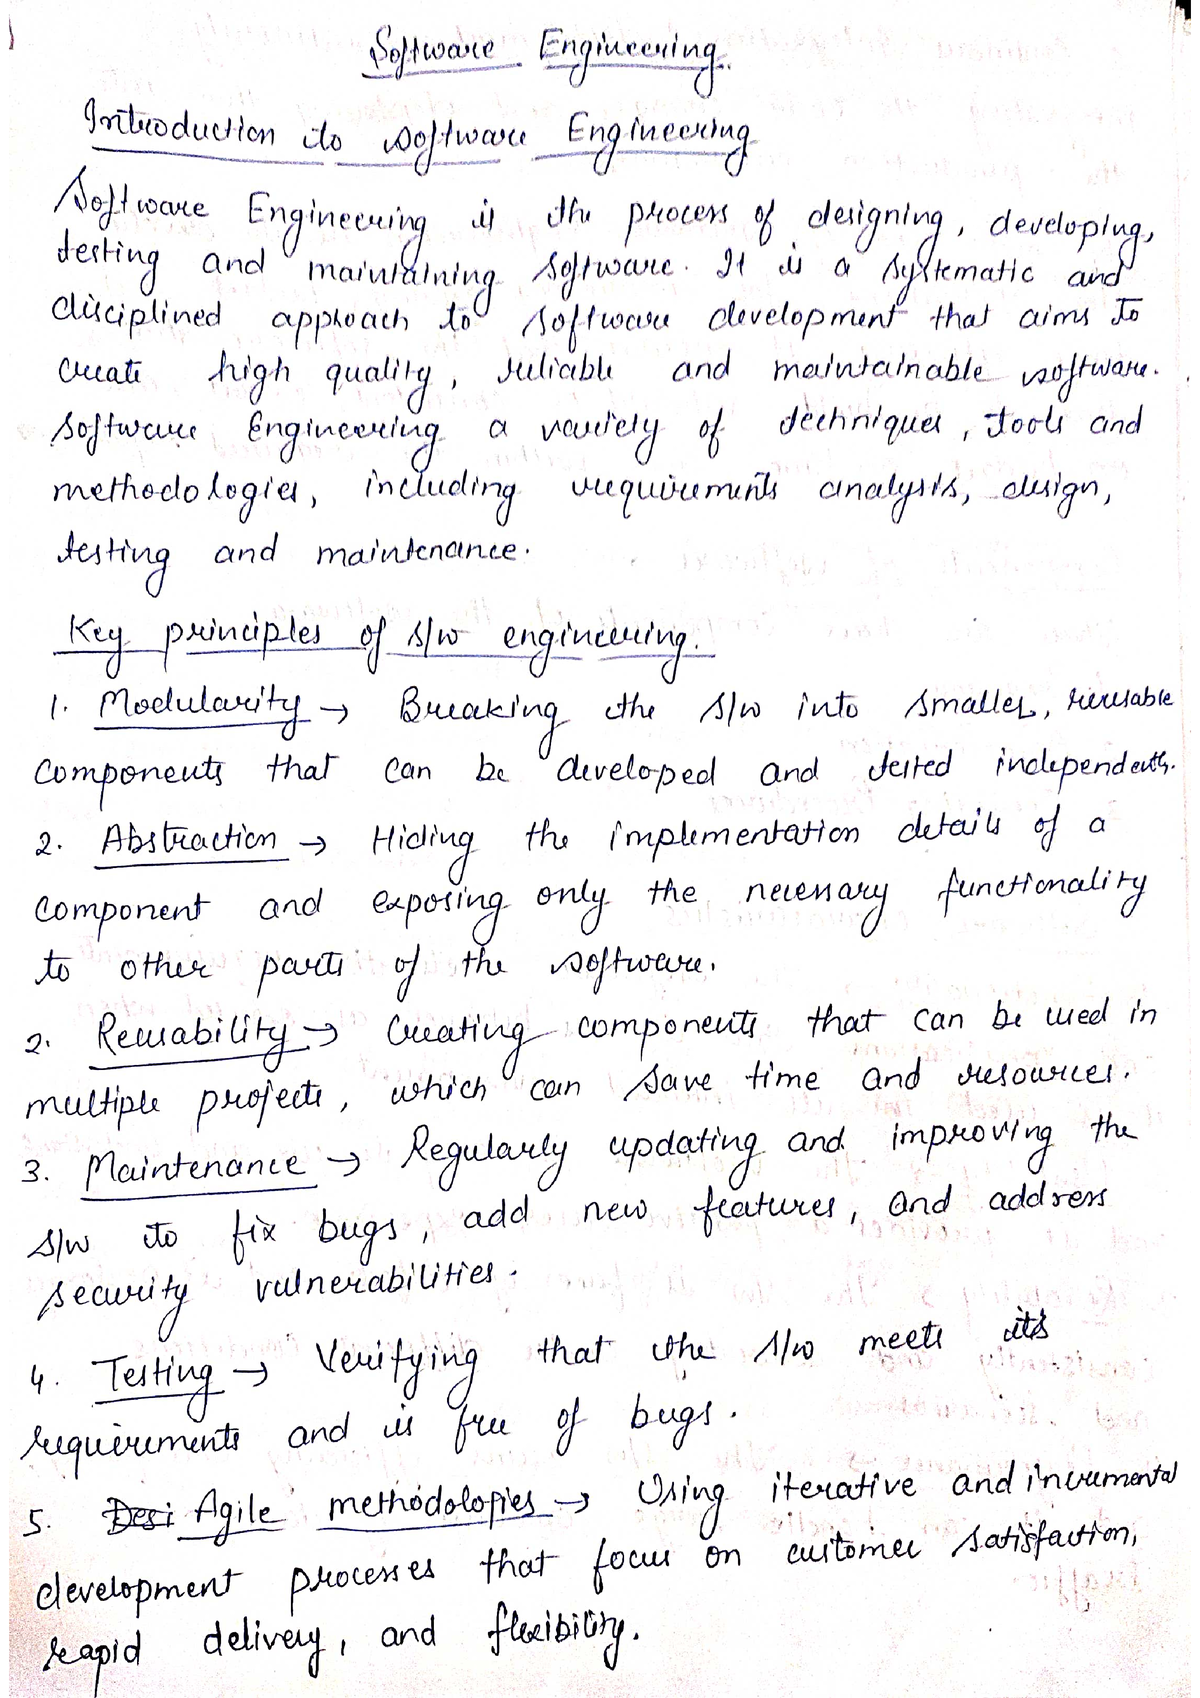 Software Engineering.
Introduction to software Engineering
Software Engineering is the process of designing, developing,
testing and maintaining software. It is a systematic and
disciplined approach to software development that aims to
create high quality, reliable and maintainable software.
Software Engineering a variety of techniques, tools and
methodologies, including requirements analysis, design,
testing and maintenance.
Key principles of s/w engineering.
1. Modularity → Breaking the s/w into smaller, reusable
components that can be developed and tested independently.
2. Abstraction → Hiding the implementation details of a
component and exposing only the necessary functionality
to other parts of the software.
2. Reusability → Creating components that can be used in
multiple projects, which can save time and resources.
3. Maintenance → Regularly updating and improving the
s/w to fix bugs, add new features, and address
security vulnerabilities.
4. Testing → Verifying that the s/w meets its
requirements and is free of bugs.
5. Desi Agile methodologies → Using iterative and incremental
development processes that focus on customer satisfaction,
rapid delivery, and flexibility.